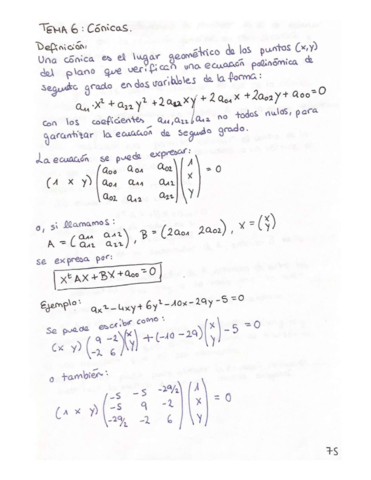 TEMA 6: Cónicas.
Definición:
Una cónica es el lugar geométrico de los puntos (x,y)
del plano que verifican una ecuación polinómica de
segundo grado en dos variables de la forma:
a₁₁·x² + a₂₂y² + 2a₁₂xy + 2a₀₁x + 2a₀₂y + a₀₀ = 0
con los coeficientes a₁₁, a₂₂, a₁₂ no todos nulos, para
garantizar la ecuación de segundo grado.
La ecuación se puede expresar:
(1 x y) (a₀₀ a₀₁ a₀₂ / a₀₁ a₁₁ a₁₂ / a₀₂ a₁₂ a₂₂) (1 / x / y) = 0
o, si llamamos:
A = (a₁₁ a₁₂ / a₁₂ a₂₂), B = (2a₀₁ 2a₀₂), X = (x / y)
se expresa por:
XᵗAX + BX + a₀₀ = 0
Ejemplo: 9x² - 4xy + 6y² - 10x - 29y - 5 = 0
Se puede escribir como:
(x y) (9 -2 / -2 6) (x / y) + (-10 -29) (x / y) - 5 = 0
o también:
(1 x y) (-5 -5 -29/2 / -5 9 -2 / -29/2 -2 6) (1 / x / y) = 0
75